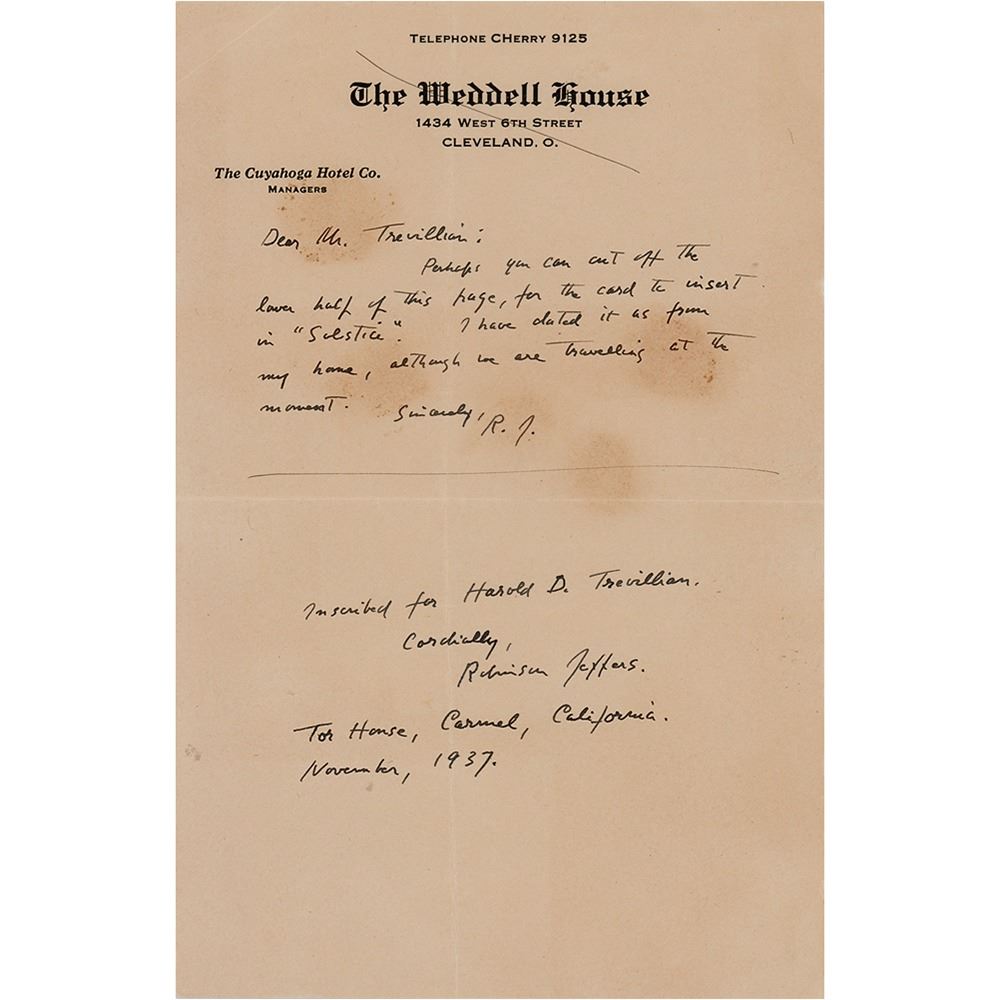 TELEPHONE CHERRY 9125
The Weddell House
1434 WEST 6TH STREET
CLEVELAND, O.
The Cuyahoga Hotel Co.
MANAGERS
Dear Mr. Trevillian:
Perhaps you can cut off the
lower half of this page, for the card to insert
in "Solstice". I have dated it as from
my home, although we are travelling at the
moment. Sincerely, R. J.
Inscribed for Harold D. Trevillian.
Cordially,
Robinson Jeffers.
Tor House, Carmel, California.
November, 1937.